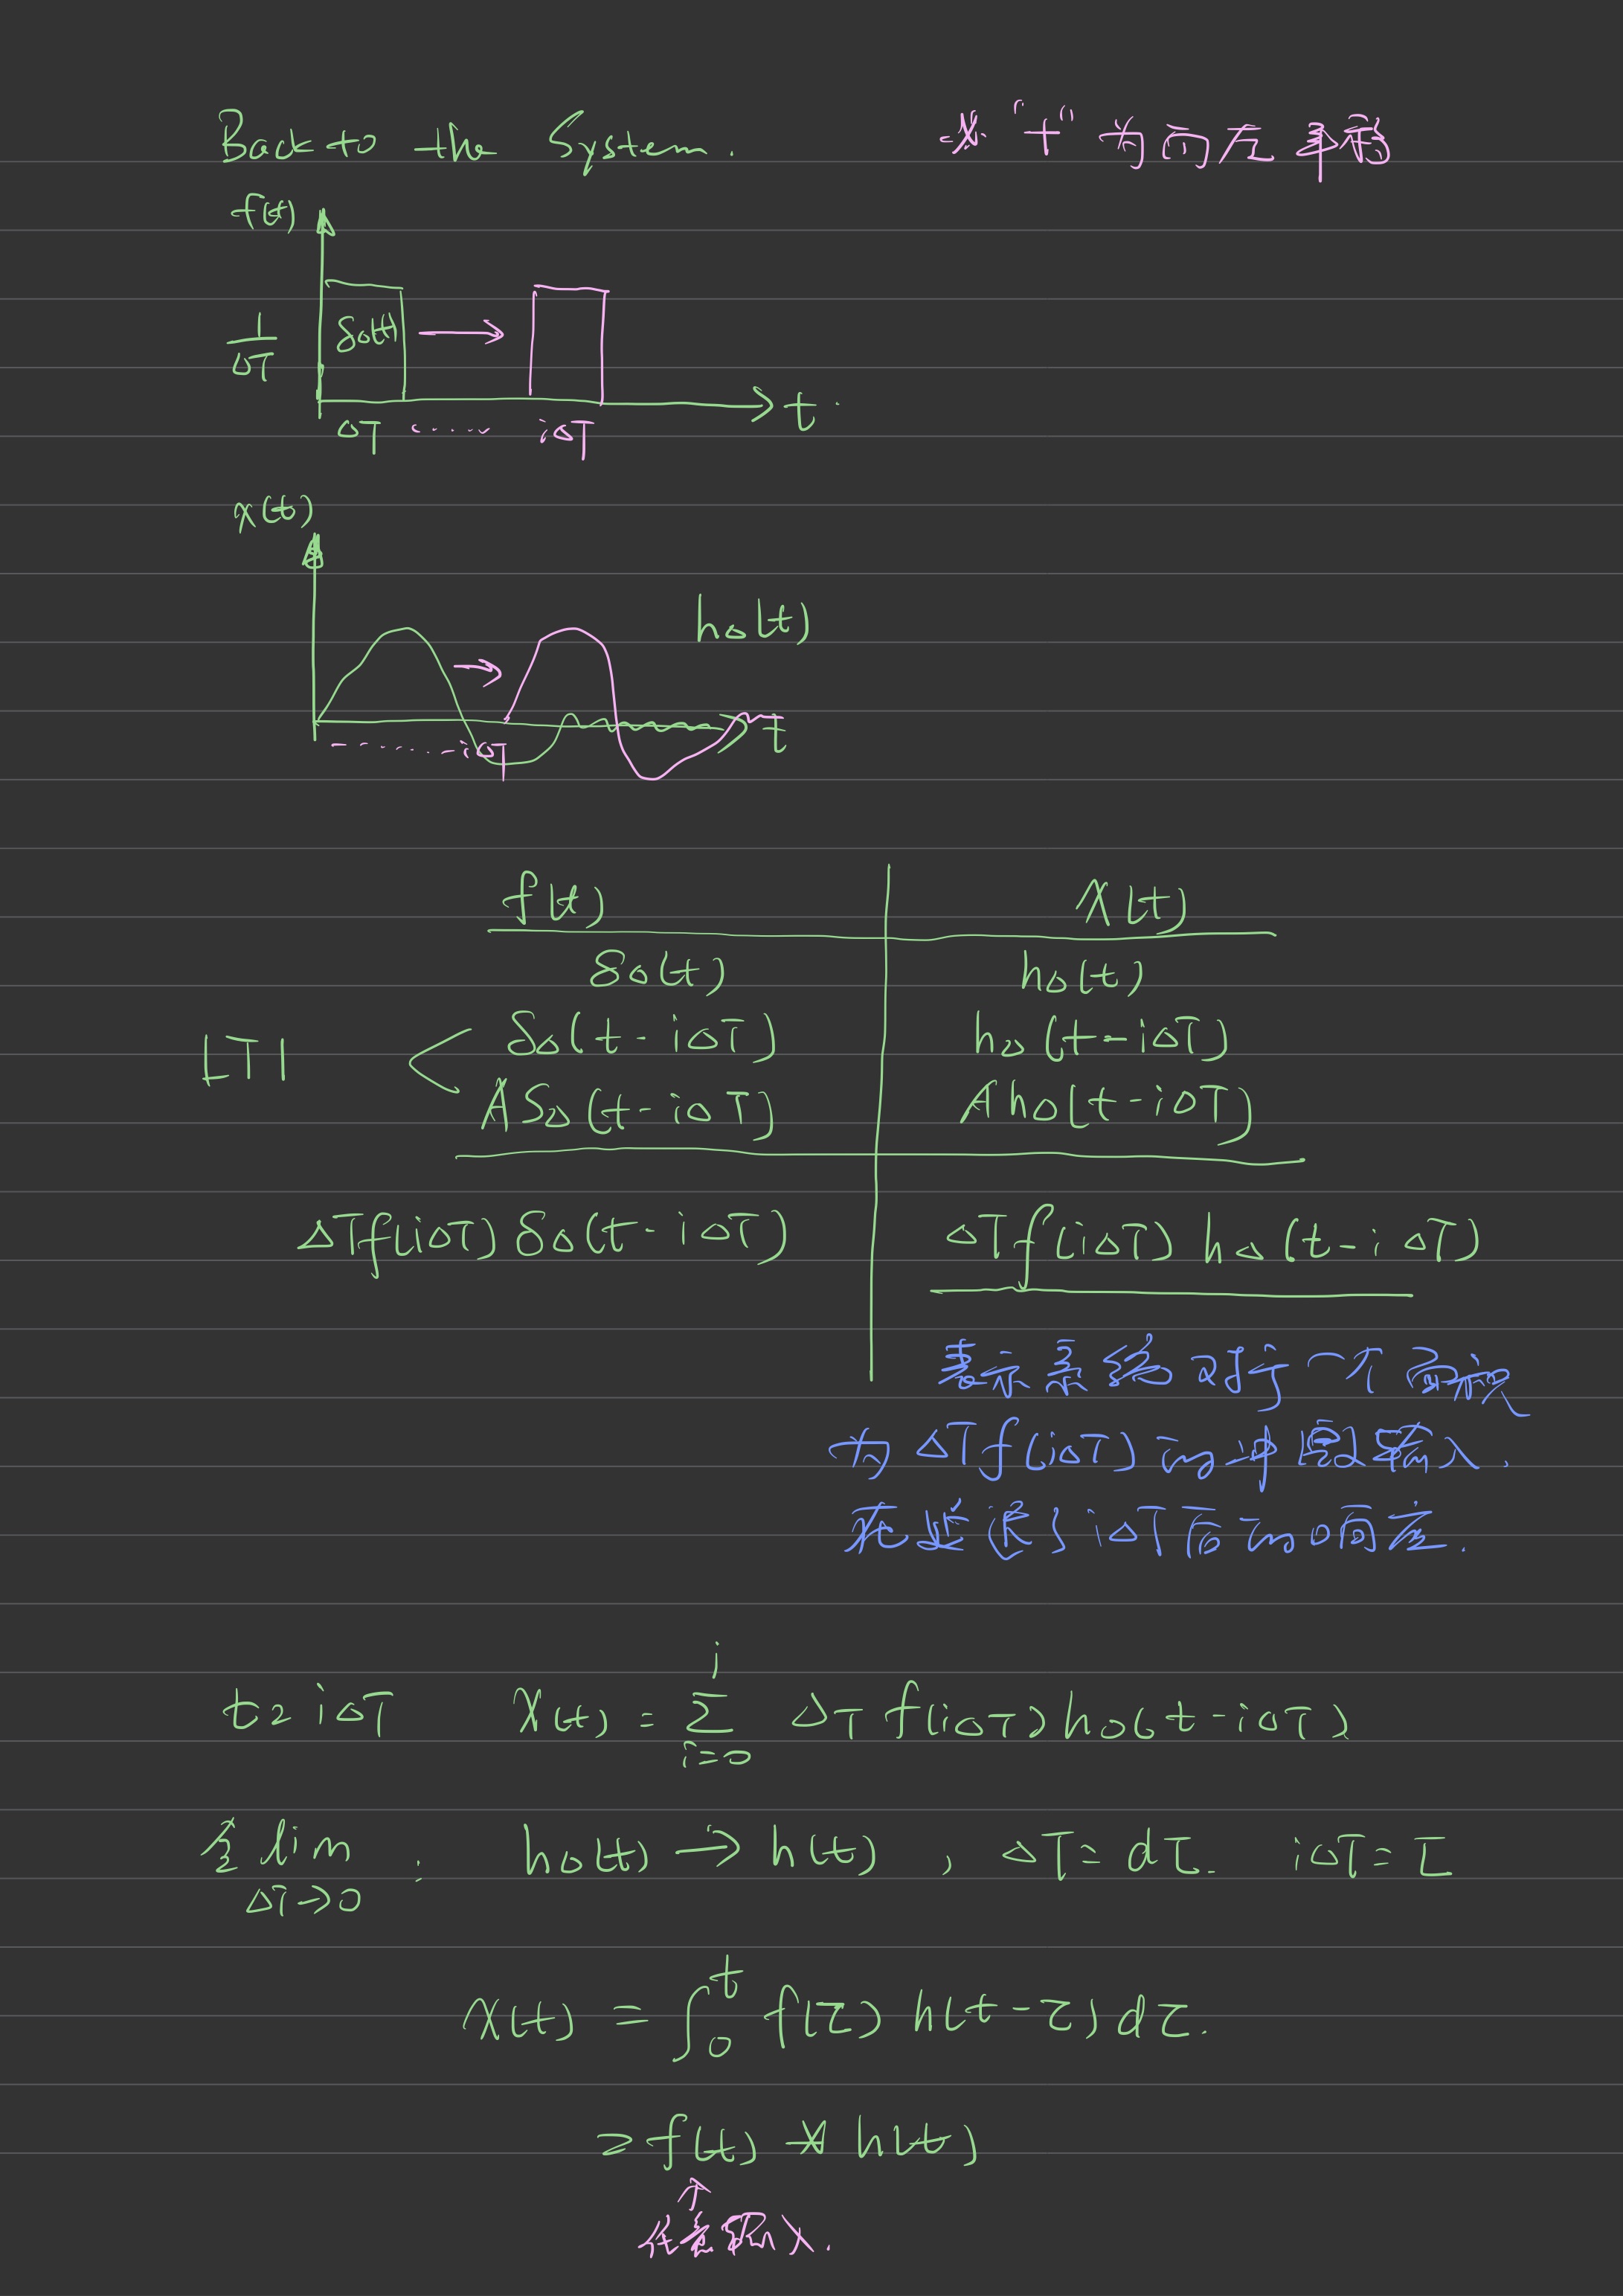 Back to the System.
“+” 为向左平移
f(t)
1/ΔT
δΔ(t)
t
ΔT ..... iΔT
x(t)
hΔ(t)
....... iΔT
t
f(t) x(t)
δΔ(t) hΔ(t)
LTI
δΔ(t-iΔT) hΔ(t-iΔT)
AδΔ(t-iΔT) AhΔ(t-iΔT)
ΔTf(iΔT)δΔ(t-iΔT) ΔTf(iΔT)hΔ(t-iΔT)
表示系统对于一个面积
为ΔTf(iΔT)的单位输入.
在延迟了iΔT后的响应.
t=iΔT x(t)=∑_{i=0}^{i} ΔT f(iΔT)hΔ(t-iΔT)
lim ΔT→0: hΔ(t)→h(t), ΔT=dτ. iΔT=τ
x(t)=∫_0^t f(τ)h(t-τ)dτ.
=f(t)*h(t)
↑
任意输入.